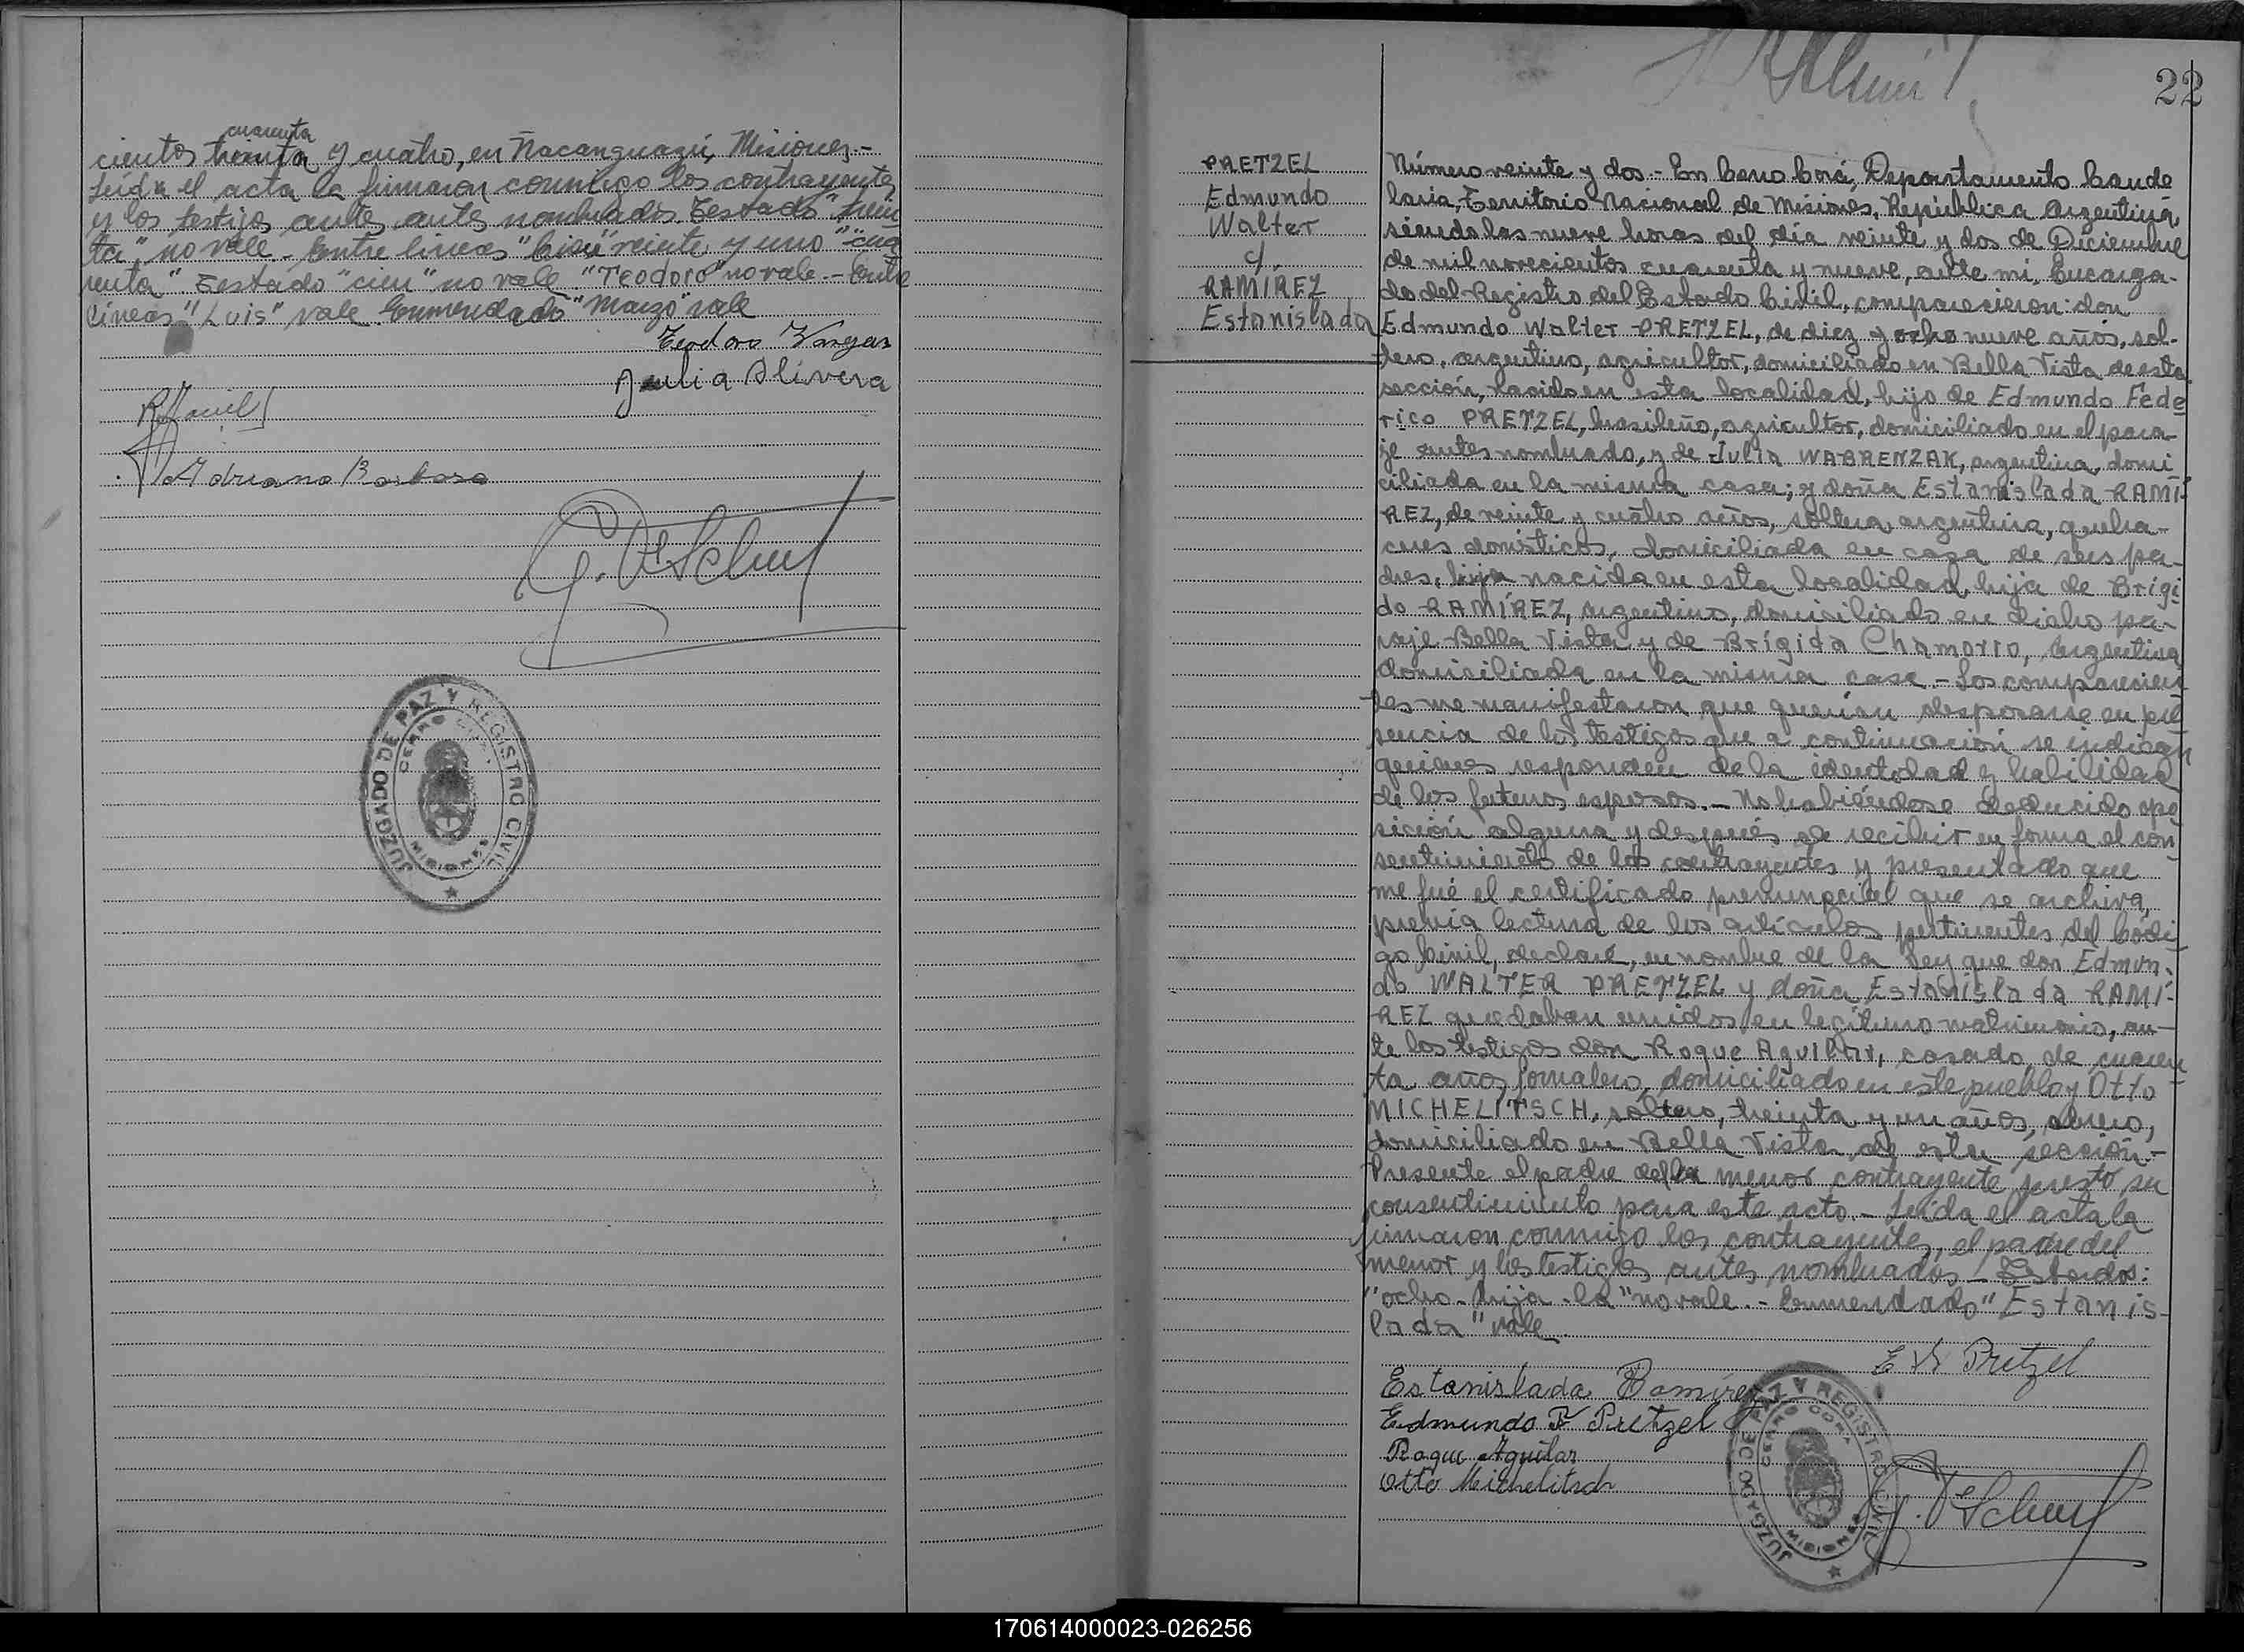 cuarenta
cientos treinta y cuatro, en Ñacanguazú, Misiones.-
Leída el acta la firmaron conmigo los contrayentes
y los testigos antes antes nombrados. Testado "trein
ta" no vale. Entre líneas "veinte y uno" "cua
renta". Testado "cien" no vale. "Teodoro" no vale.- Entre
líneas "Luis" vale. Enmendado "Marzo" vale
Teodoro Vargas
Julia Olivera
Adriano Barboza
JUZGADO DE PAZ Y REGISTRO CIVIL
CERRO CORÁ
MISIONES
22
PRETZEL
Edmundo
Walter
c/
RAMIREZ
Estanislada
Número veinte y dos.- En Cerro Corá, Departamento Cande
laria, Territorio Nacional de Misiones, República Argentina,
siendo las nueve horas del día veinte y dos de Diciembre
de mil novecientos cuarenta y nueve, ante mi, Encarga-
do del Registro del Estado Civil, comparecieron: don
Edmundo Walter PRETZEL, de diez y ocho nueve años, sol-
tero, argentino, agricultor, domiciliado en Bella Vista de esta
sección, nacido en esta localidad, hijo de Edmundo Fede
rico PRETZEL, brasileño, agricultor, domiciliado en el para-
je antes nombrado, y de Julia WABRENZAK, argentina, domi
ciliada en la misma casa; y doña Estanislada RAMÍ-
REZ, de veinte y cuatro años, soltera, argentina, queha-
ceres domésticos, domiciliada en casa de sus pa-
dres, hija nacida en esta localidad, hija de Brígi
do RAMÍREZ, argentino, domiciliado en dicho pa-
raje Bella Vista y de Brígida Chamorro, argentina,
domiciliada en la misma casa.- Los comparecien
tes me manifestaron que querían desposarse en pre
sencia de los testigos que a continuación se indican
quienes responden de la identidad y habilidad
de los futuros esposos.- No habiéndose deducido opo
sición alguna y después de recibir en forma el con
sentimiento de los contrayentes y presentado que
me fué el certificado prenupcial que se archiva,
previa lectura de los artículos pertinentes del Códi
go Civil, declaré, en nombre de la Ley que don Edmun-
do WALTER PRETZEL y doña Estanislada RAMÍ-
REZ quedaban unidos en legítimo matrimonio, an-
te los testigos don Roque Aguilar, casado de cuaren
ta años, jornalero, domiciliado en este pueblo y Otto
MICHELITSCH, soltero, treinta y un años, obrero,
domiciliado en Bella Vista de esta sección.-
Presente el padre del la menor contrayente prestó su
consentimiento para este acto.- Leída el acta la
firmaron conmigo los contrayentes, el padre del
menor y los testigos antes nombrados.- Testados:
"ocho - hija - la" no vale.- Enmendado "Estanis-
lada" vale
E W Pretzel
Estanislada Ramírez
Edmundo F Pretzel
Roque Aguilar
Otto Michelitsch
JUZGADO DE PAZ Y REGISTRO CIVIL
CERRO CORÁ
MISIONES
170614000023-026256